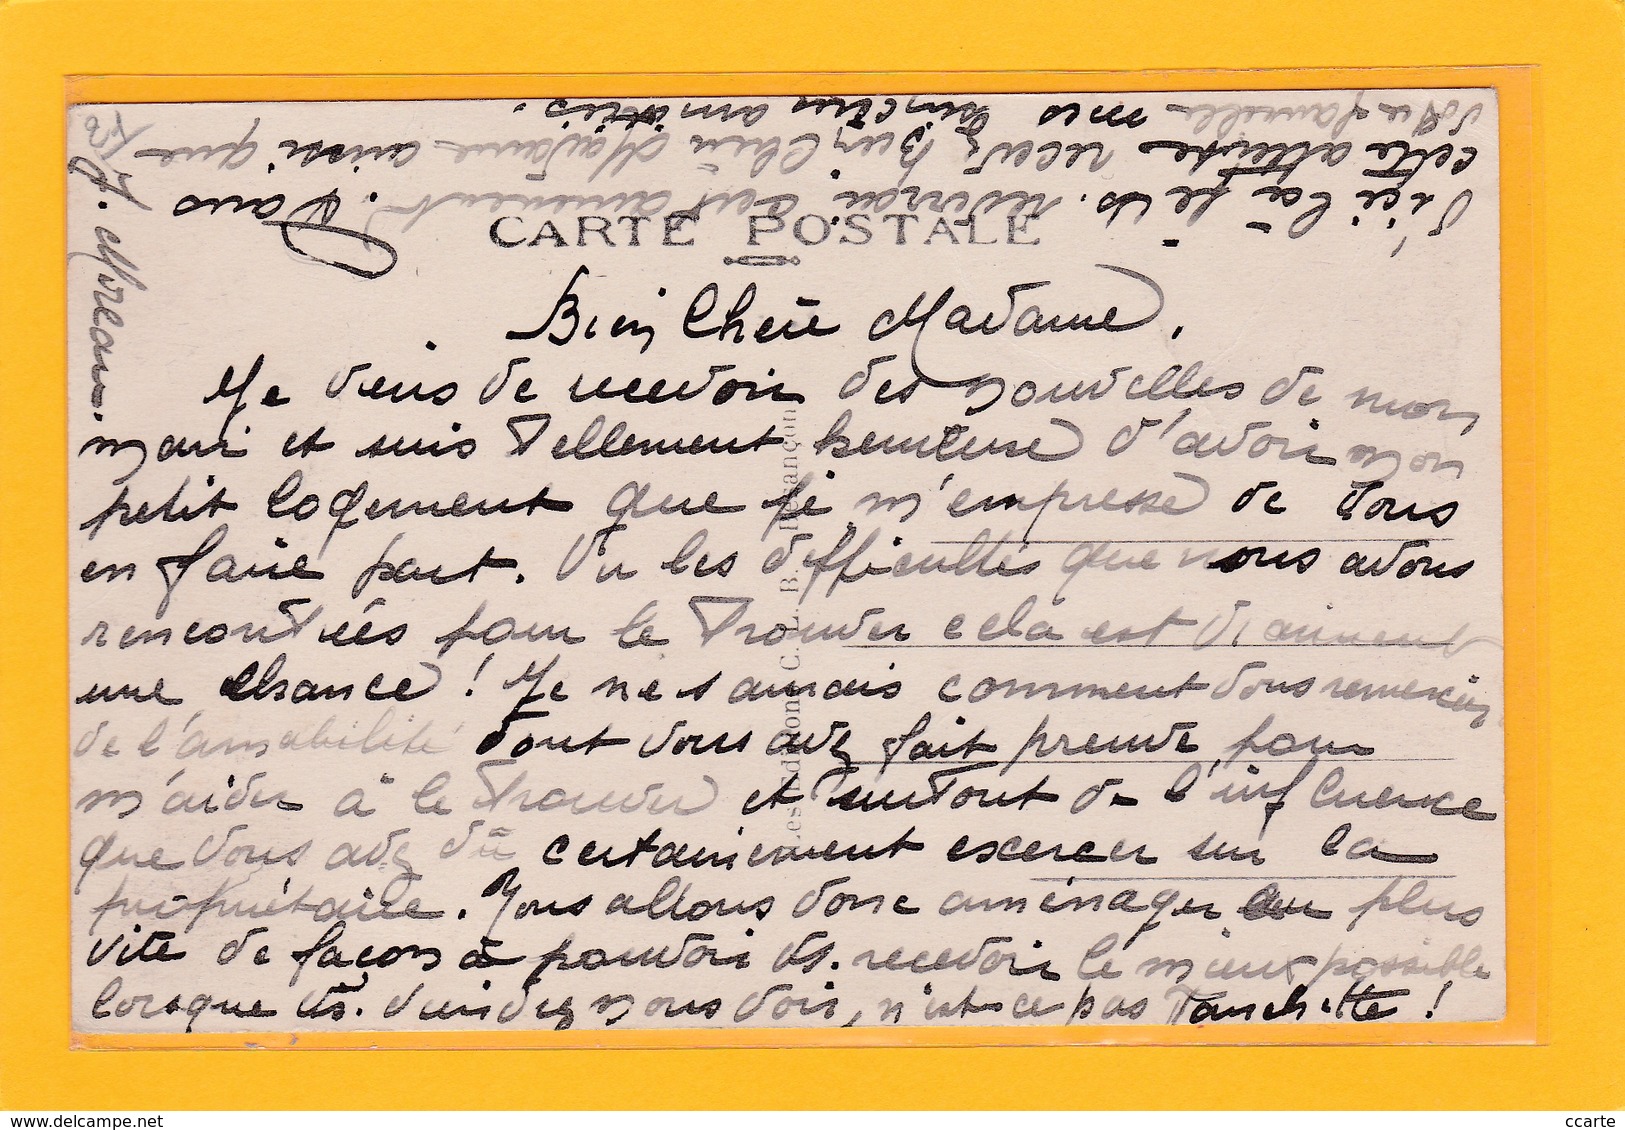 CARTE POSTALE
Bien Chère Madame,
Je viens de recevoir des nouvelles de mon
mari et suis tellement heureuse d'avoir mon
petit logement que je m'empresse de vous
en faire part. Vu les difficultés que nous avons
rencontrées pour le trouver cela est vraiment
une chance! Je ne saurais comment vous remercier
de l'amabilité dont vous avez fait preuve pour
m'aider à le trouver et surtout de l'influence
que vous avez dû certainement exercer sur la
propriétaire. Nous allons donc aménager au plus
vite de façon à pouvoir vs. recevoir le mieux possible
lorsque vs. viendrez nous voir, n'est-ce pas Tanchette!
D'ici là je vs. reverrai certainement. Dans
cette attente recevez Bien Chère Madame ainsi que
votre famille mes sincères amitiés.
J. Moreau.
Les Editions C. L. B. Besançon
ccarte